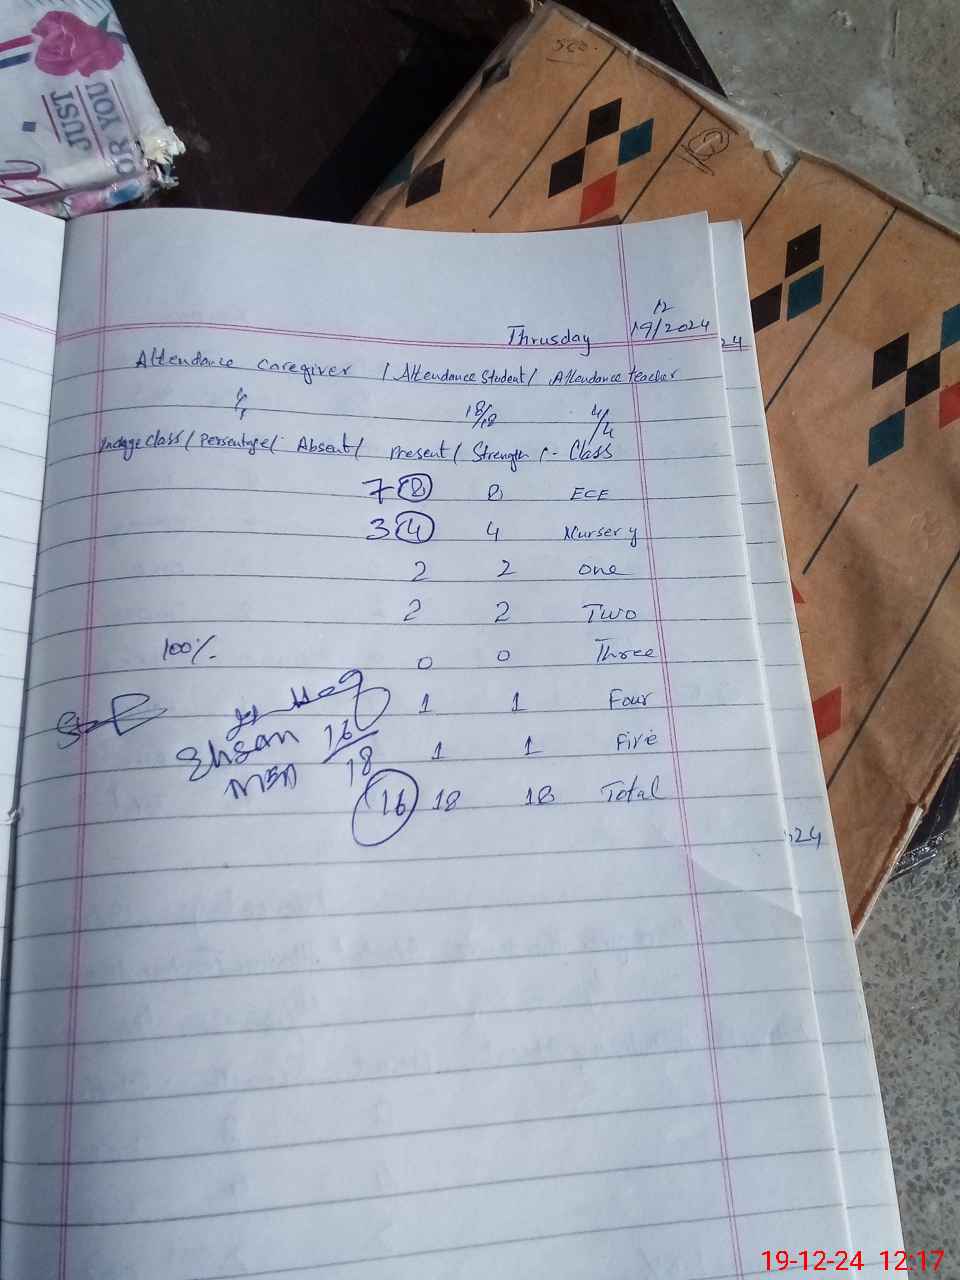 JUST
FOR YOU
Thrusday 19/12/2024
Attendance caregiver / Attendance student / Attendance teacher
18/18 4/4
Incharge class / Persentage / Absent / Present / Strength / Class
7 8 8 ECE
3 4 4 Nursery
2 2 one
2 2 Two
100% 0 0 Three
1 1 Four
Ehsan 16/18 1 1 Five
16 18 18 Total
24
24
19-12-24 12:17